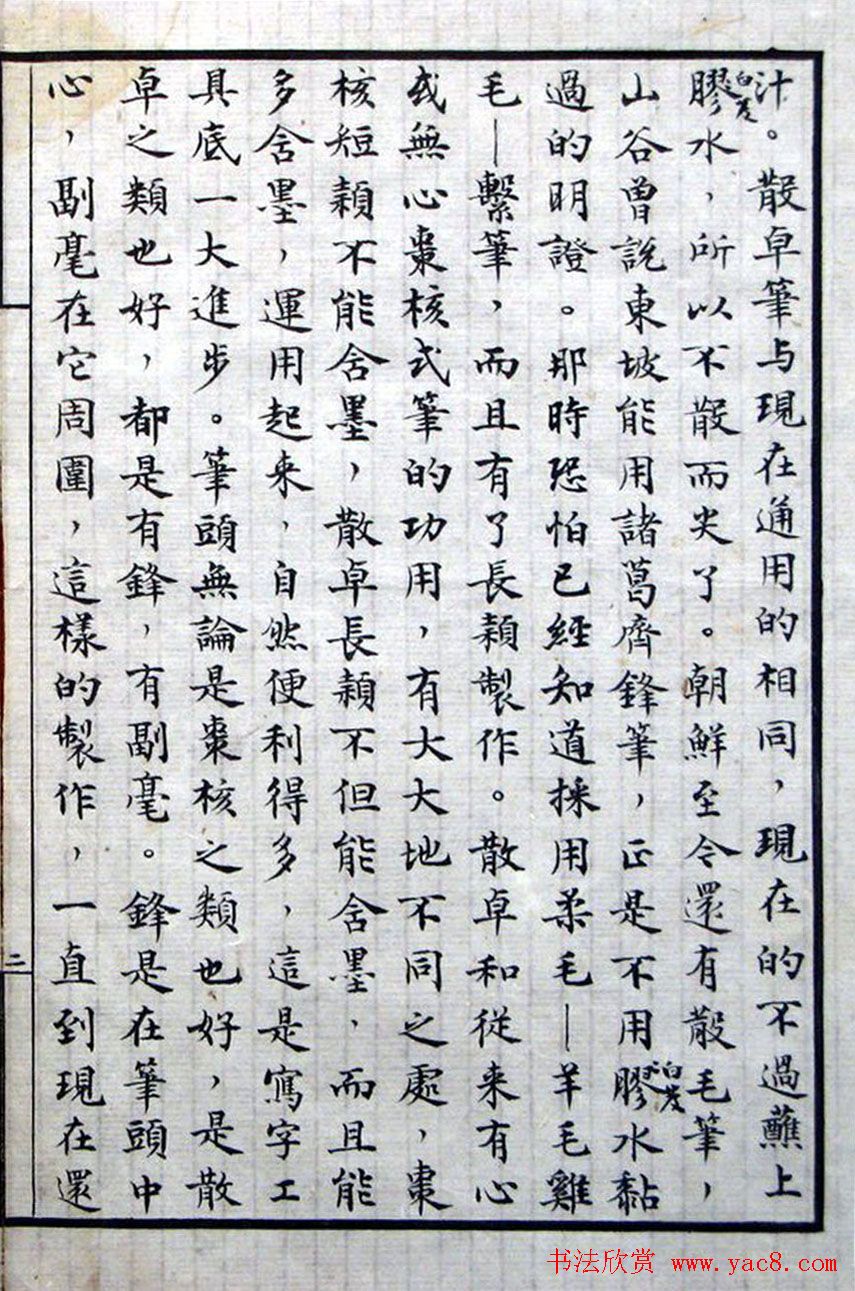 汁。散卓筆与現在通用的相同，現在的不過蘸上
白芨
膠水，所以不散而尖了。朝鮮至今還有散毛筆，
山谷曾說東坡能用諸葛齊鋒筆，正是不用膠水黏
和白芨
過的明證。那時恐怕已經知道採用柔毛—羊毛雞
毛—繫筆，而且有了長穎製作。散卓和從来有心
或無心棗核式筆的功用，有大大地不同之處，棗
核短穎不能含墨，散卓長穎不但能含墨，而且能
多含墨，運用起来，自然便利得多，這是寫字工
具底一大進步。筆頭無論是棗核之類也好，是散
卓之類也好，都是有鋒，有副毫。鋒是在筆頭中
心，副毫在它周圍，這樣的製作，一直到現在還
二
书法欣赏 www.yac8.com